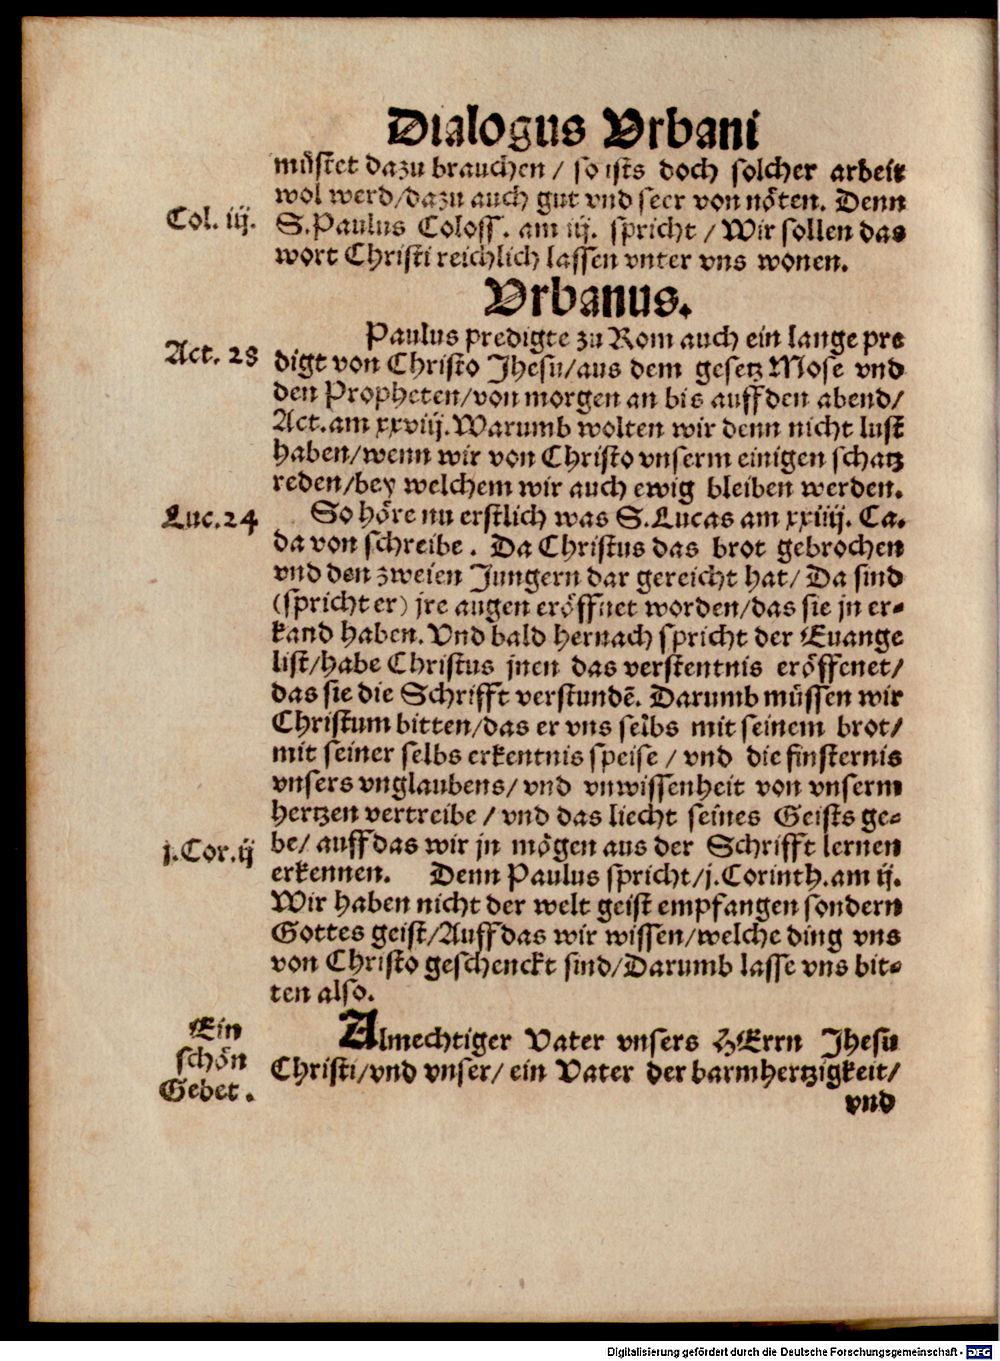 Dialogus Vrbani
müstet dazu brauchen / so ists doch solcher arbeit
wol werd/dazu auch gut vnd seer von nöten. Denn
Col. iij.
S.Paulus Coloss. am iij. spricht / Wir sollen das
wort Christi reichlich lassen vnter vns wonen.
Vrbanus.
Paulus predigte zu Rom auch ein lange pre
Act. 28
digt von Christo Jhesu/aus dem gesetz Mose vnd
den Propheten/von morgen an bis auff den abend/
Act.am xxviij. Warumb wolten wir denn nicht lust
haben/wenn wir von Christo vnserm einigen schatz
reden/bey welchem wir auch ewig bleiben werden.
Luc.24
So höre nu erstlich was S.Lucas am xxiiij. Ca.
da von schreibe. Da Christus das brot gebrochen
vnd den zweien Jungern dar gereicht hat/ Da sind
(spricht er) jre augen eröffnet worden/das sie jn er-
kand haben. Vnd bald hernach spricht der Euange
list/habe Christus jnen das verstentnis eröffenet/
das sie die Schrifft verstundē. Darumb müssen wir
Christum bitten/das er vns selbs mit seinem brot/
mit seiner selbs erkentnis speise / vnd die finsternis
vnsers vnglaubens/ vnd vnwissenheit von vnserm
hertzen vertreibe / vnd das liecht seines Geists ge-
j.Cor.ij
be/ auff das wir jn mögen aus der Schrifft lernen
erkennen. Denn Paulus spricht/j.Corinth.am ij.
Wir haben nicht der welt geist empfangen sondern
Gottes geist/Auff das wir wissen/welche ding vns
von Christo geschenckt sind/Darumb lasse vns bit-
ten also.
Ein
schön
Gebet.
Almechtiger Vater vnsers HErrn Jhesu
Christi/vnd vnser/ ein Vater der barmhertzigkeit/
vnd
Digitalisierung gefördert durch die Deutsche Forschungsgemeinschaft - DFG